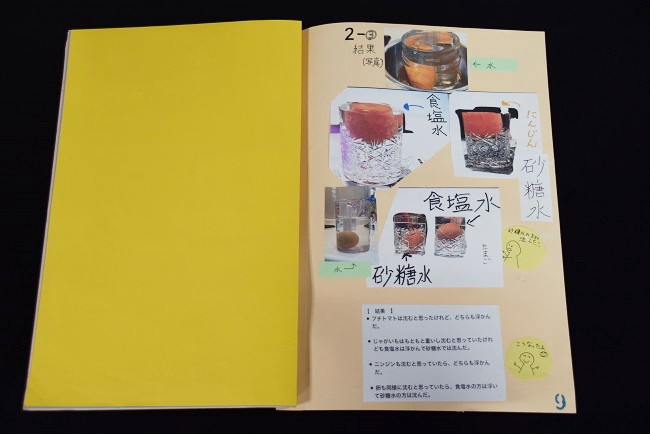 2-③
結果
(写真)
← 水
食塩水
にんじん
砂糖水
食塩水
たまご
水→
砂糖水
【 結果 】
• プチトマトは沈むと思ったけれど、どちらも浮かん
だ。
• じゃがいもはもともと重いし沈むと思っていたけれ
ども食塩水は浮かんで砂糖水では沈んだ。
• ニンジンも沈むと思っていたら、どちらも浮かん
だ。
• 卵も同様に沈むと思っていたら、食塩水の方は浮い
て砂糖水の方は沈んだ。
9